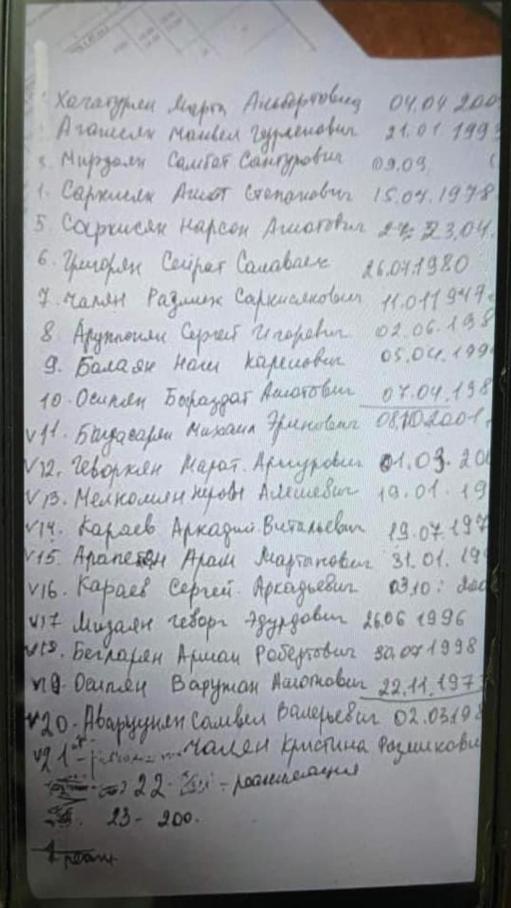 Хачатурян Марта Альбертовна 04.04 200
Агашелян Манвел Гурменович 21.01 1993
3. Мирзоян Самбат Сантурович 09.09
1. Саркисян Ашот Степанович 15.04.1978
5 Саркисян Нарсен Ашотович 23,04.
6. Григорян Сейрат Салаваевич 26.07.1980
7. Чалян Размик Саркисякович 11.01 1947
8 Арутюнян Сергей Игоревич 02.06.198
9. Балаян Наги Каренович 05.04.199
10. Осипян Багаздат Ашотович 07.04.198
V11. Багдасарян Михаил Эрикович 08.10 2001.
V12. Геворкян Марат. Артурович 01.03. 200
V13. Мелкомян Алешевич 19.01. 19
V14. Караев Аркадий Витальевич 19.07 197
V15. Арапетян Арам Мартынович 31.01. 19
V16. Караев Сергей. Аркадьевич 03.10: 200
V17 Мизаян Геворг Эдуардович 26.06 1996
V18. Бегларян Арман Робертович 30.07 1998
V19. Осипян Варужан Ашотович 22.11.1973
V20. Аваруцян Самвел Валерьевич 02.03.198
V21- Чалян Кристина Размиковн
22 - реанимация
23- 200.
1 реан.